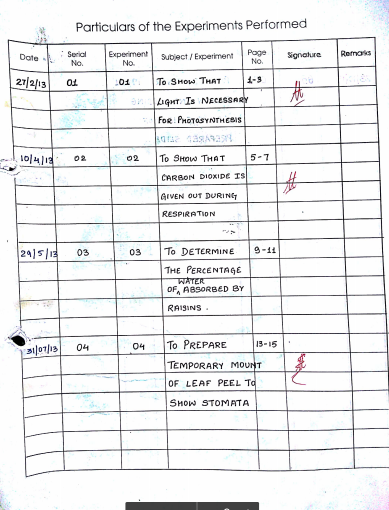 Particulars of the Experiments Performed
Date Serial No. Experiment No. Subject / Experiment Page No. Signature Remarks
27/2/13 01 01 TO SHOW THAT 1-3
LIGHT IS NECESSARY
FOR PHOTOSYNTHESIS
10/4/13 02 02 TO SHOW THAT 5-7
CARBON DIOXIDE IS
GIVEN OUT DURING
RESPIRATION
29/5/13 03 03 TO DETERMINE 9-11
THE PERCENTAGE
OF WATER ABSORBED BY
RAISINS.
31/07/13 04 04 TO PREPARE 13-15
TEMPORARY MOUNT
OF LEAF PEEL TO
SHOW STOMATA